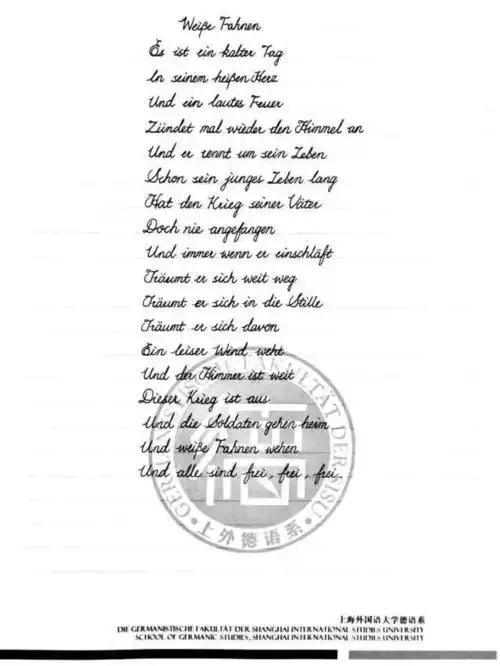 Weiße Fahnen
Es ist ein kalter Tag
In seinem heißen Herz
Und ein lautes Feuer
Zündet mal wieder den Himmel an
Und er rennt um sein Leben
Schon sein junges Leben lang
Hat den Krieg seiner Väter
Doch nie angefangen
Und immer wenn er einschläft
Träumt er sich weit weg
Träumt er sich in die Stille
Träumt er sich davon
Ein leiser Wind weht
Und der Himmer ist weit
Dieser Krieg ist aus
Und die Soldaten gehen heim
Und weiße Fahnen wehen
Und alle sind frei, frei, frei.
·上外德语系·
上海外国语大学德语系
DIE GERMANISTISCHE FAKULTÄT DER SHANGHAI INTERNATIONAL STUDIES UNIVERSITY
SCHOOL OF GERMANIC STUDIES, SHANGHAI INTERNATIONAL STUDIES UNIVERSITY